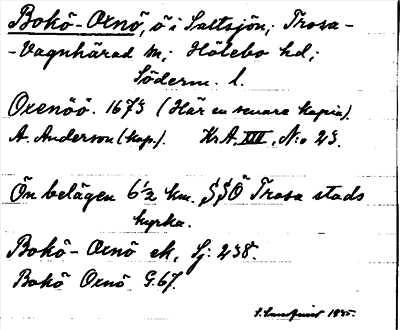 Bokö-Oxnö, ö i Saltsjön; Trosa-
-Vagnhärad sn; Hölebo hd;
Söderm. l.
Oxenöö. 1675 (Här en senare kopia).
A. Anderson (kop.). K.A. XIII, N:o 23.
Ön belägen 6½ km. SSÖ Trosa stads
kyrka.
Bokö-Oxnö ek, Sj: 238.
Bokö Oxnö G.67.
1935.